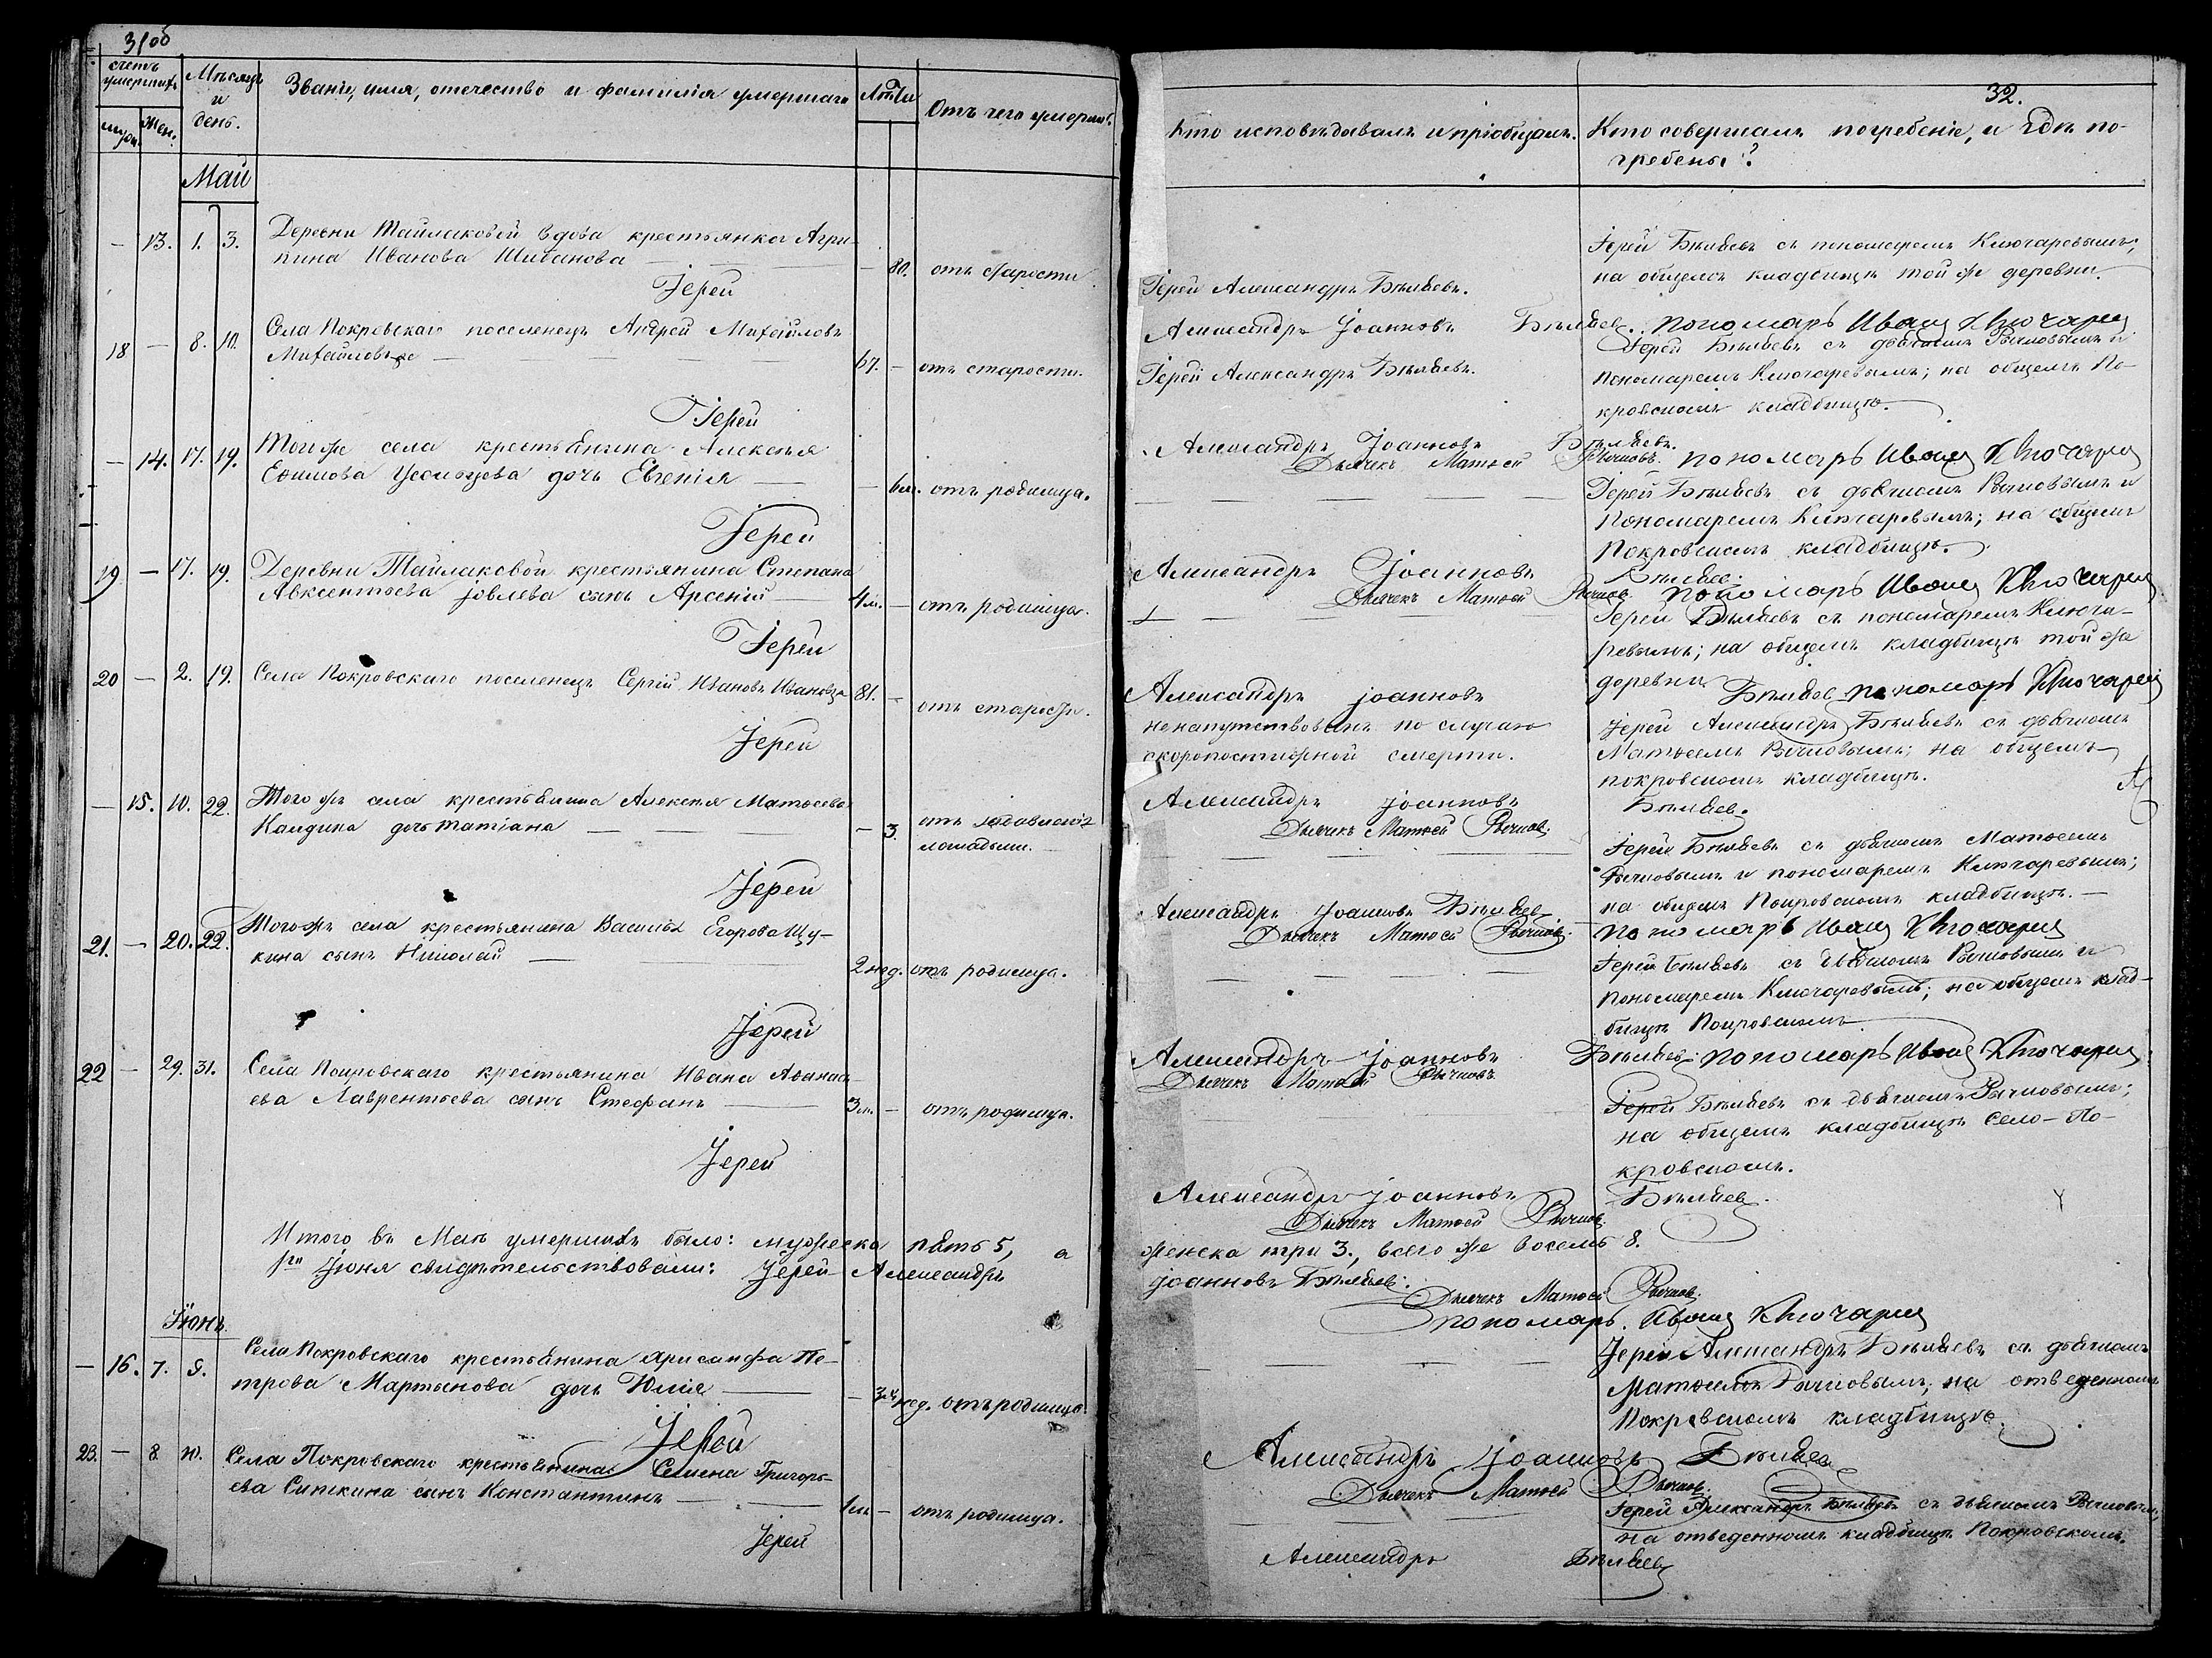 31об
счетъ умершихъ
Мѣсяцъ и день.
Званіе, имя, отечество и фамилія умершаго
Лѣта
Отъ чего умеръ.
муж.
жен.
Май
— 13. 1. 3. Деревни Тайлаковой вдова крестьянка Агри-
пина Иванова Шиванова — 80. отъ старости.
Іерей
18 — 8. 10. Села Покровскаго поселенецъ Андрей Михайловъ
67. — отъ старости.
Іерей
— 14. 17. 19. Того же села крестьянина Алексѣя
Ефимова дочь Евгенія — 6 м. отъ родимца.
Іерей
19 — 17. 19. Деревни Тайлаковой крестьянина Степана
Авксентьева Іовлева сынъ Арсеній 4 м. — отъ родимца.
Іерей
20 — 2. 19. Села Покровскаго поселенецъ Сергій Ивановъ 81. — отъ старости.
Іерей
— 15. 10. 22. Того же села крестьянина Алексѣя Матѳеева
Каидина дочь Татіана — 3. отъ
лошадьми.
Іерей
21. — 20. 22. Того же села крестьянина Василія Егорова Щу-
кина сынъ Николай 2 нед. отъ родимца.
Іерей
22 — 29. 31. Села Покровскаго крестьянина Ивана Аѳанась-
ева Лаврентьева сынъ Стефанъ 3 м. — отъ родимца.
Іерей
Итого въ Маѣ умершихъ было: мужеска пять 5, а
Іюня свидѣтельствовали: Іерей Александръ
Іюнь
— 16. 7. 9. Села Покровскаго крестьянина Хрисанфа Пе-
трова Мартынова дочь Юлія — 3 нед. отъ родимца.
Іерей
23. — 8 10. Села Покровскаго крестьянина Семена Григорь-
ева Ситкина сынъ Константинъ 1 м. — отъ родимца.
Іерей
32.
Кто исповѣдывалъ и пріобщалъ.
Кто совершалъ погребеніе, и гдѣ по-
гребены?
Іерей Александръ Бѣляевъ.
Іерей Бѣляевъ съ пономаремъ Ключаревымъ;
на общемъ кладбищѣ той же деревни.
Александръ Іоанновъ Бѣляевъ. пономарь Иванъ Ключаревъ
Іерей Александръ Бѣляевъ.
Іерей Бѣляевъ съ дьячкомъ Рычковымъ и
пономаремъ Ключаревымъ; на общемъ По-
кровскомъ кладбищѣ.
Александръ Іоанновъ Бѣляевъ.
Дьячекъ Матѳей Рычковъ. пономарь Иванъ Ключаревъ
Іерей Бѣляевъ съ дьячкомъ Рычковымъ и
пономаремъ Ключаревымъ; на общемъ
Покровскомъ кладбищѣ.
Александръ Іоанновъ Бѣляевъ.
Дьячекъ Матѳей Рычковъ. пономарь Иванъ Ключаревъ
Іерей Бѣляевъ съ пономаремъ Ключа-
ревымъ; на общемъ кладбищѣ той же
деревни.
Александръ Іоанновъ Бѣляевъ пономарь Ключаревъ
ненапутствованъ по случаю
скоропостижной смерти.
Іерей Александръ Бѣляевъ съ дьячкомъ
Матѳеемъ Рычковымъ; на общемъ
покровскомъ кладбищѣ.
Александръ Іоанновъ Бѣляевъ.
Дьячекъ Матѳей Рычковъ.
Іерей Бѣляевъ съ дьячкомъ Матѳеемъ
Рычковымъ и пономаремъ Ключаревымъ;
на общемъ Покровскомъ кладбищѣ. —
Александръ Іоанновъ Бѣляевъ
Дьячекъ Матѳей Рычковъ. пономарь Иванъ Ключаревъ
Іерей Бѣляевъ съ дьячкомъ Рычковымъ и
пономаремъ Ключаревымъ; на общемъ клад-
бищѣ Покровскомъ
Александръ Іоанновъ Бѣляевъ. пономарь Иванъ Ключаревъ
Дьячекъ Матѳей Рычковъ
Іерей Бѣляевъ съ дьячкомъ Рычковымъ;
на общемъ кладбищѣ Село-По-
кровскомъ.
Александръ Іоанновъ Бѣляевъ.
Дьячекъ Матѳей Рычковъ.
женска три 3., всего же восемь 8.
Іоанновъ Бѣляевъ.
Дьячекъ Матѳей Рычковъ.
пономарь. Иванъ Ключаревъ
Іерей Александръ Бѣляевъ съ дьячкомъ
Матѳеемъ Рычковымъ; на отведенномъ
Покровскомъ кладбищѣ.
Александръ Іоанновъ Бѣляевъ
Дьячекъ Матѳей Рычковъ.
Іерей Александръ Бѣляевъ съ дьячкомъ Рычковымъ;
на отведенномъ кладбищѣ Покровскомъ.
Александръ Бѣляевъ